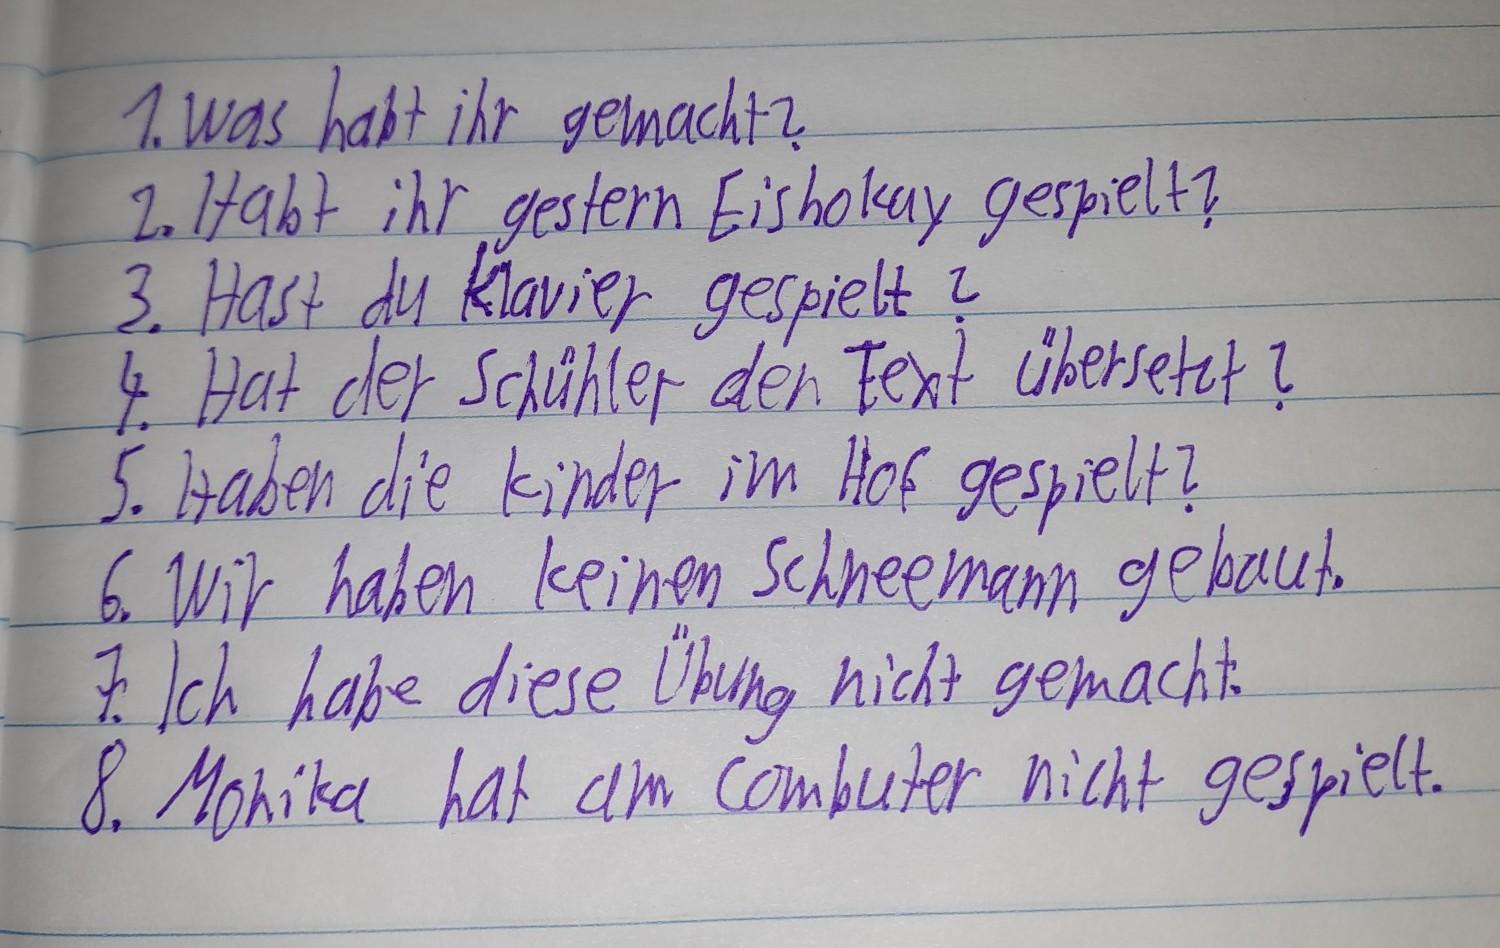 1. Was habt ihr gemacht?
2. Habt ihr gestern Eishokay gespielt?
3. Hast du Klavier gespielt?
4. Hat der Schühler den Text übersetzt?
5. Haben die Kinder im Hof gespielt?
6. Wir haben keinen Schneemann gebaut.
7. Ich habe diese Übung nicht gemacht.
8. Monika hat am Combuter nicht gespielt.